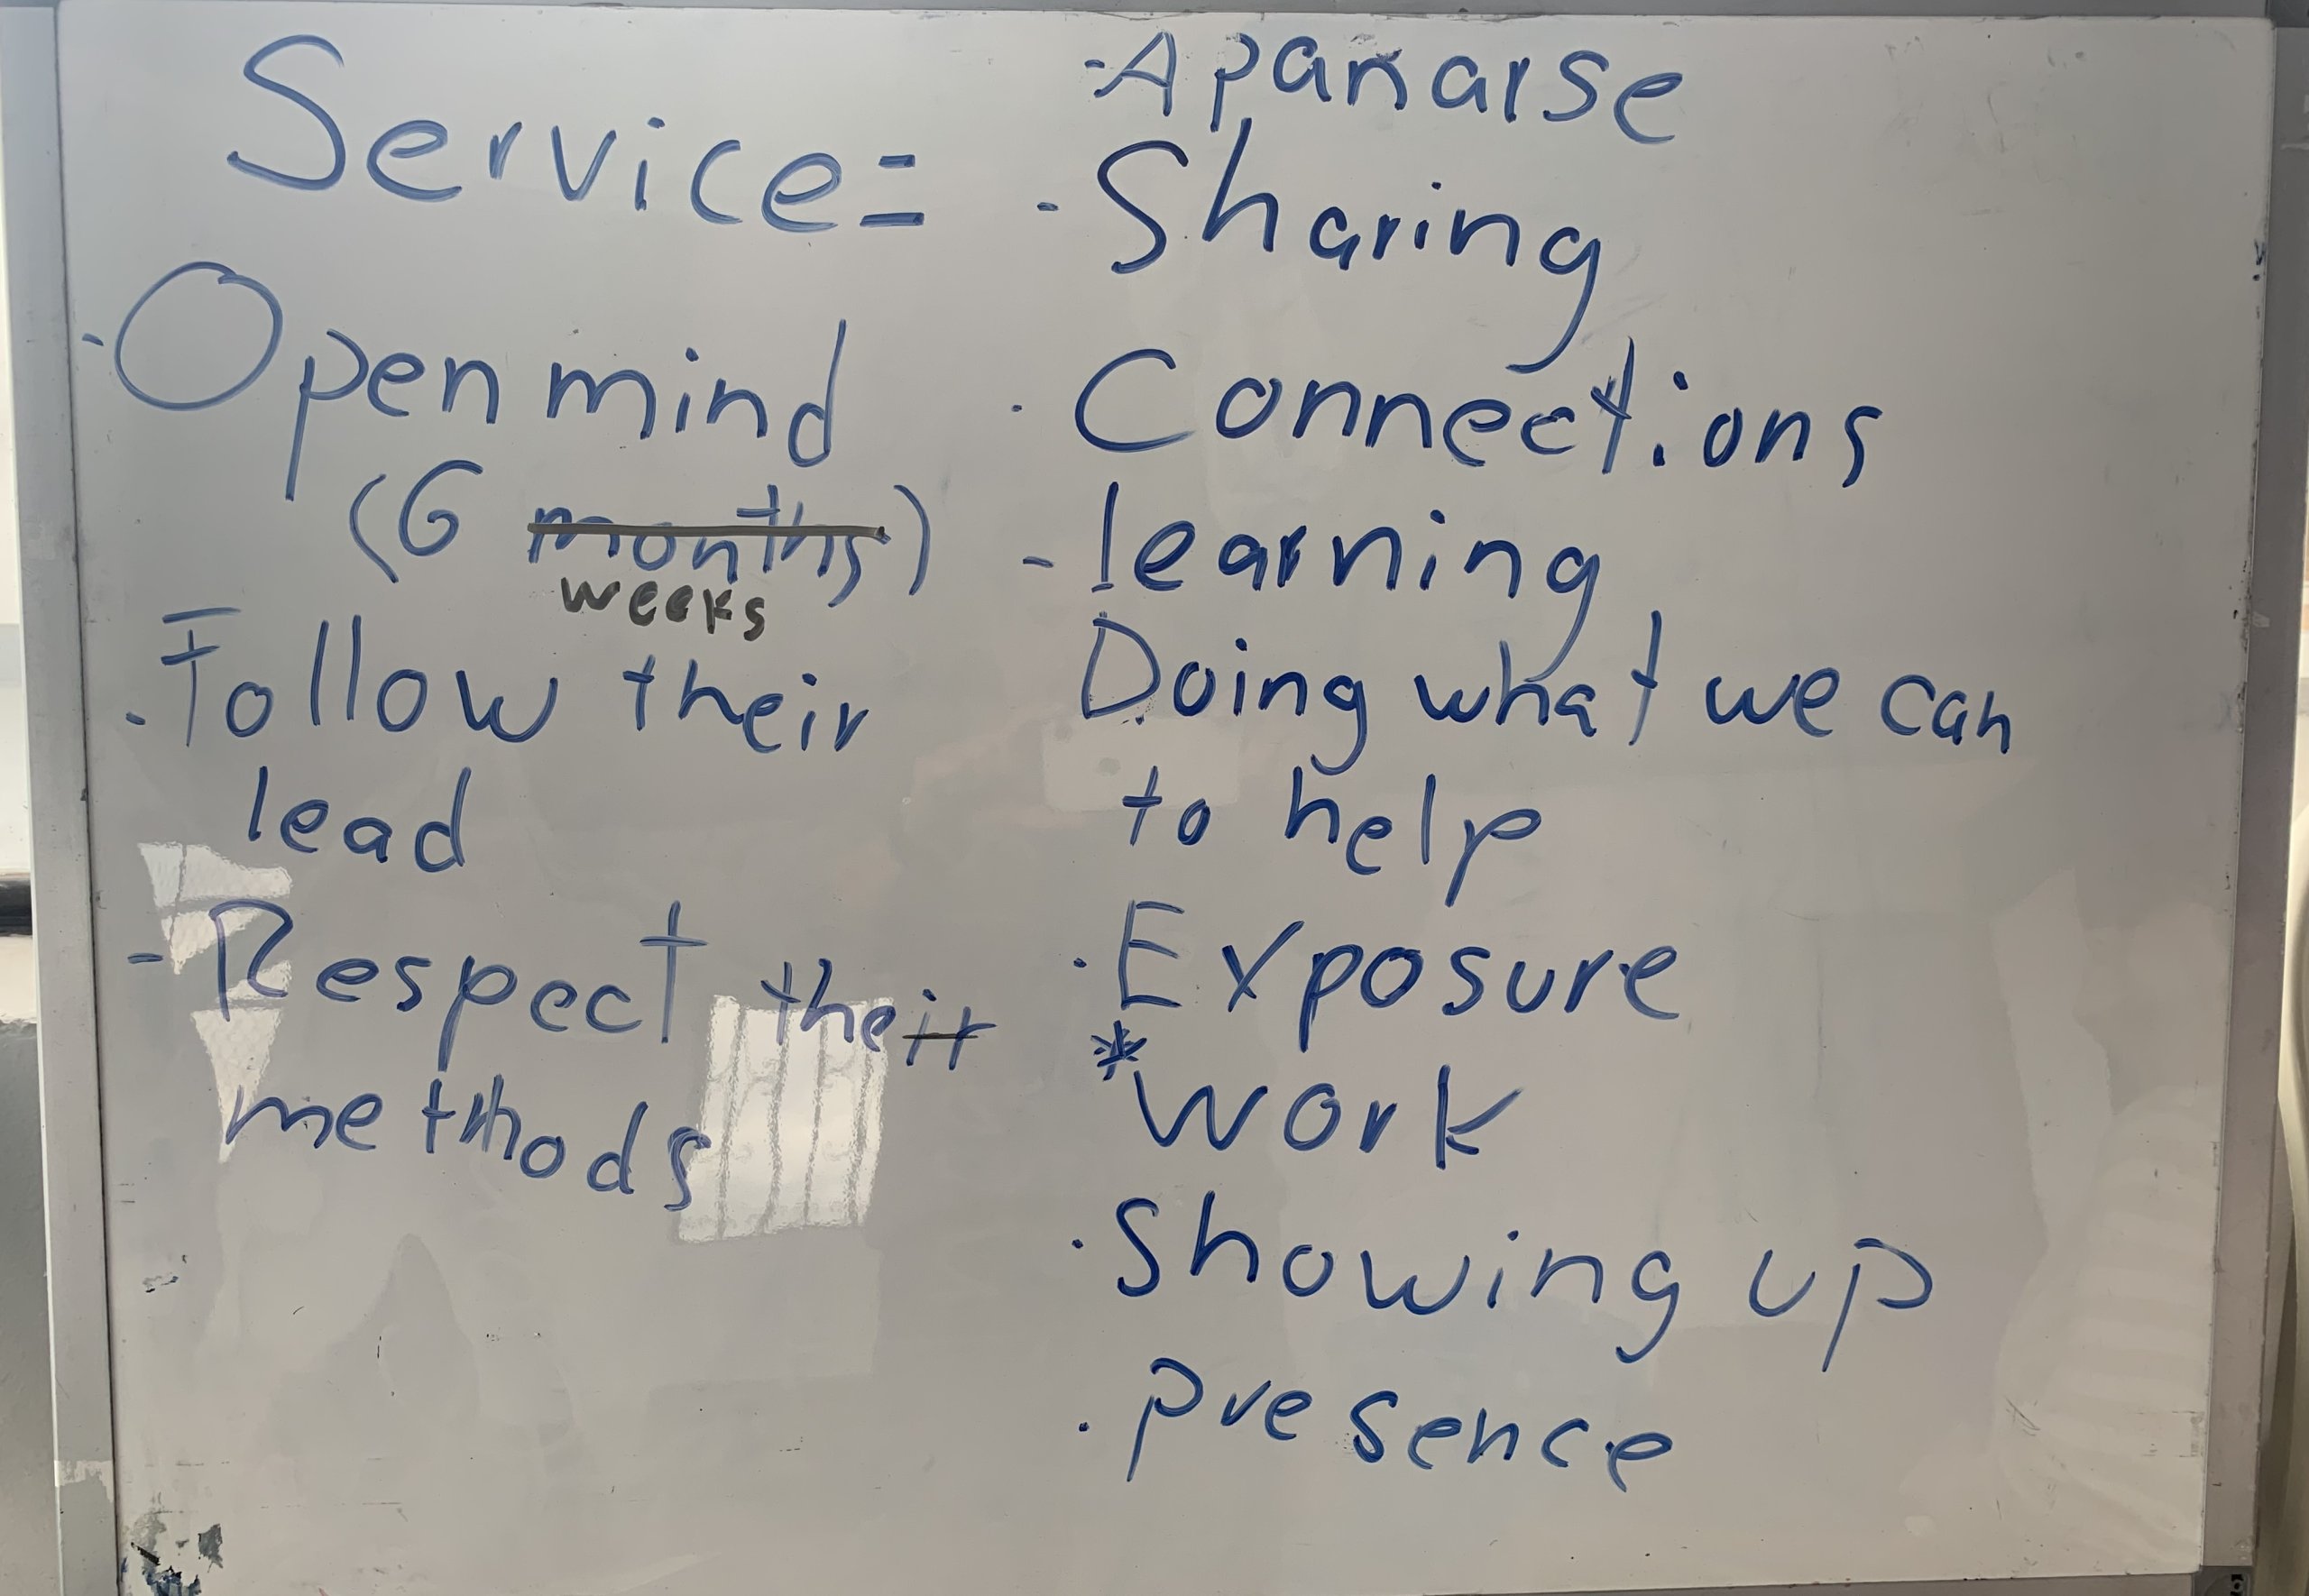 Service=
-Open mind
(6 months)
weeks
.Follow their
lead
-Respect their
methods
-Apanarse
-Sharing
.Connections
-learning
Doing what we can
to help
.Exposure
*work
.Showing up
.presence